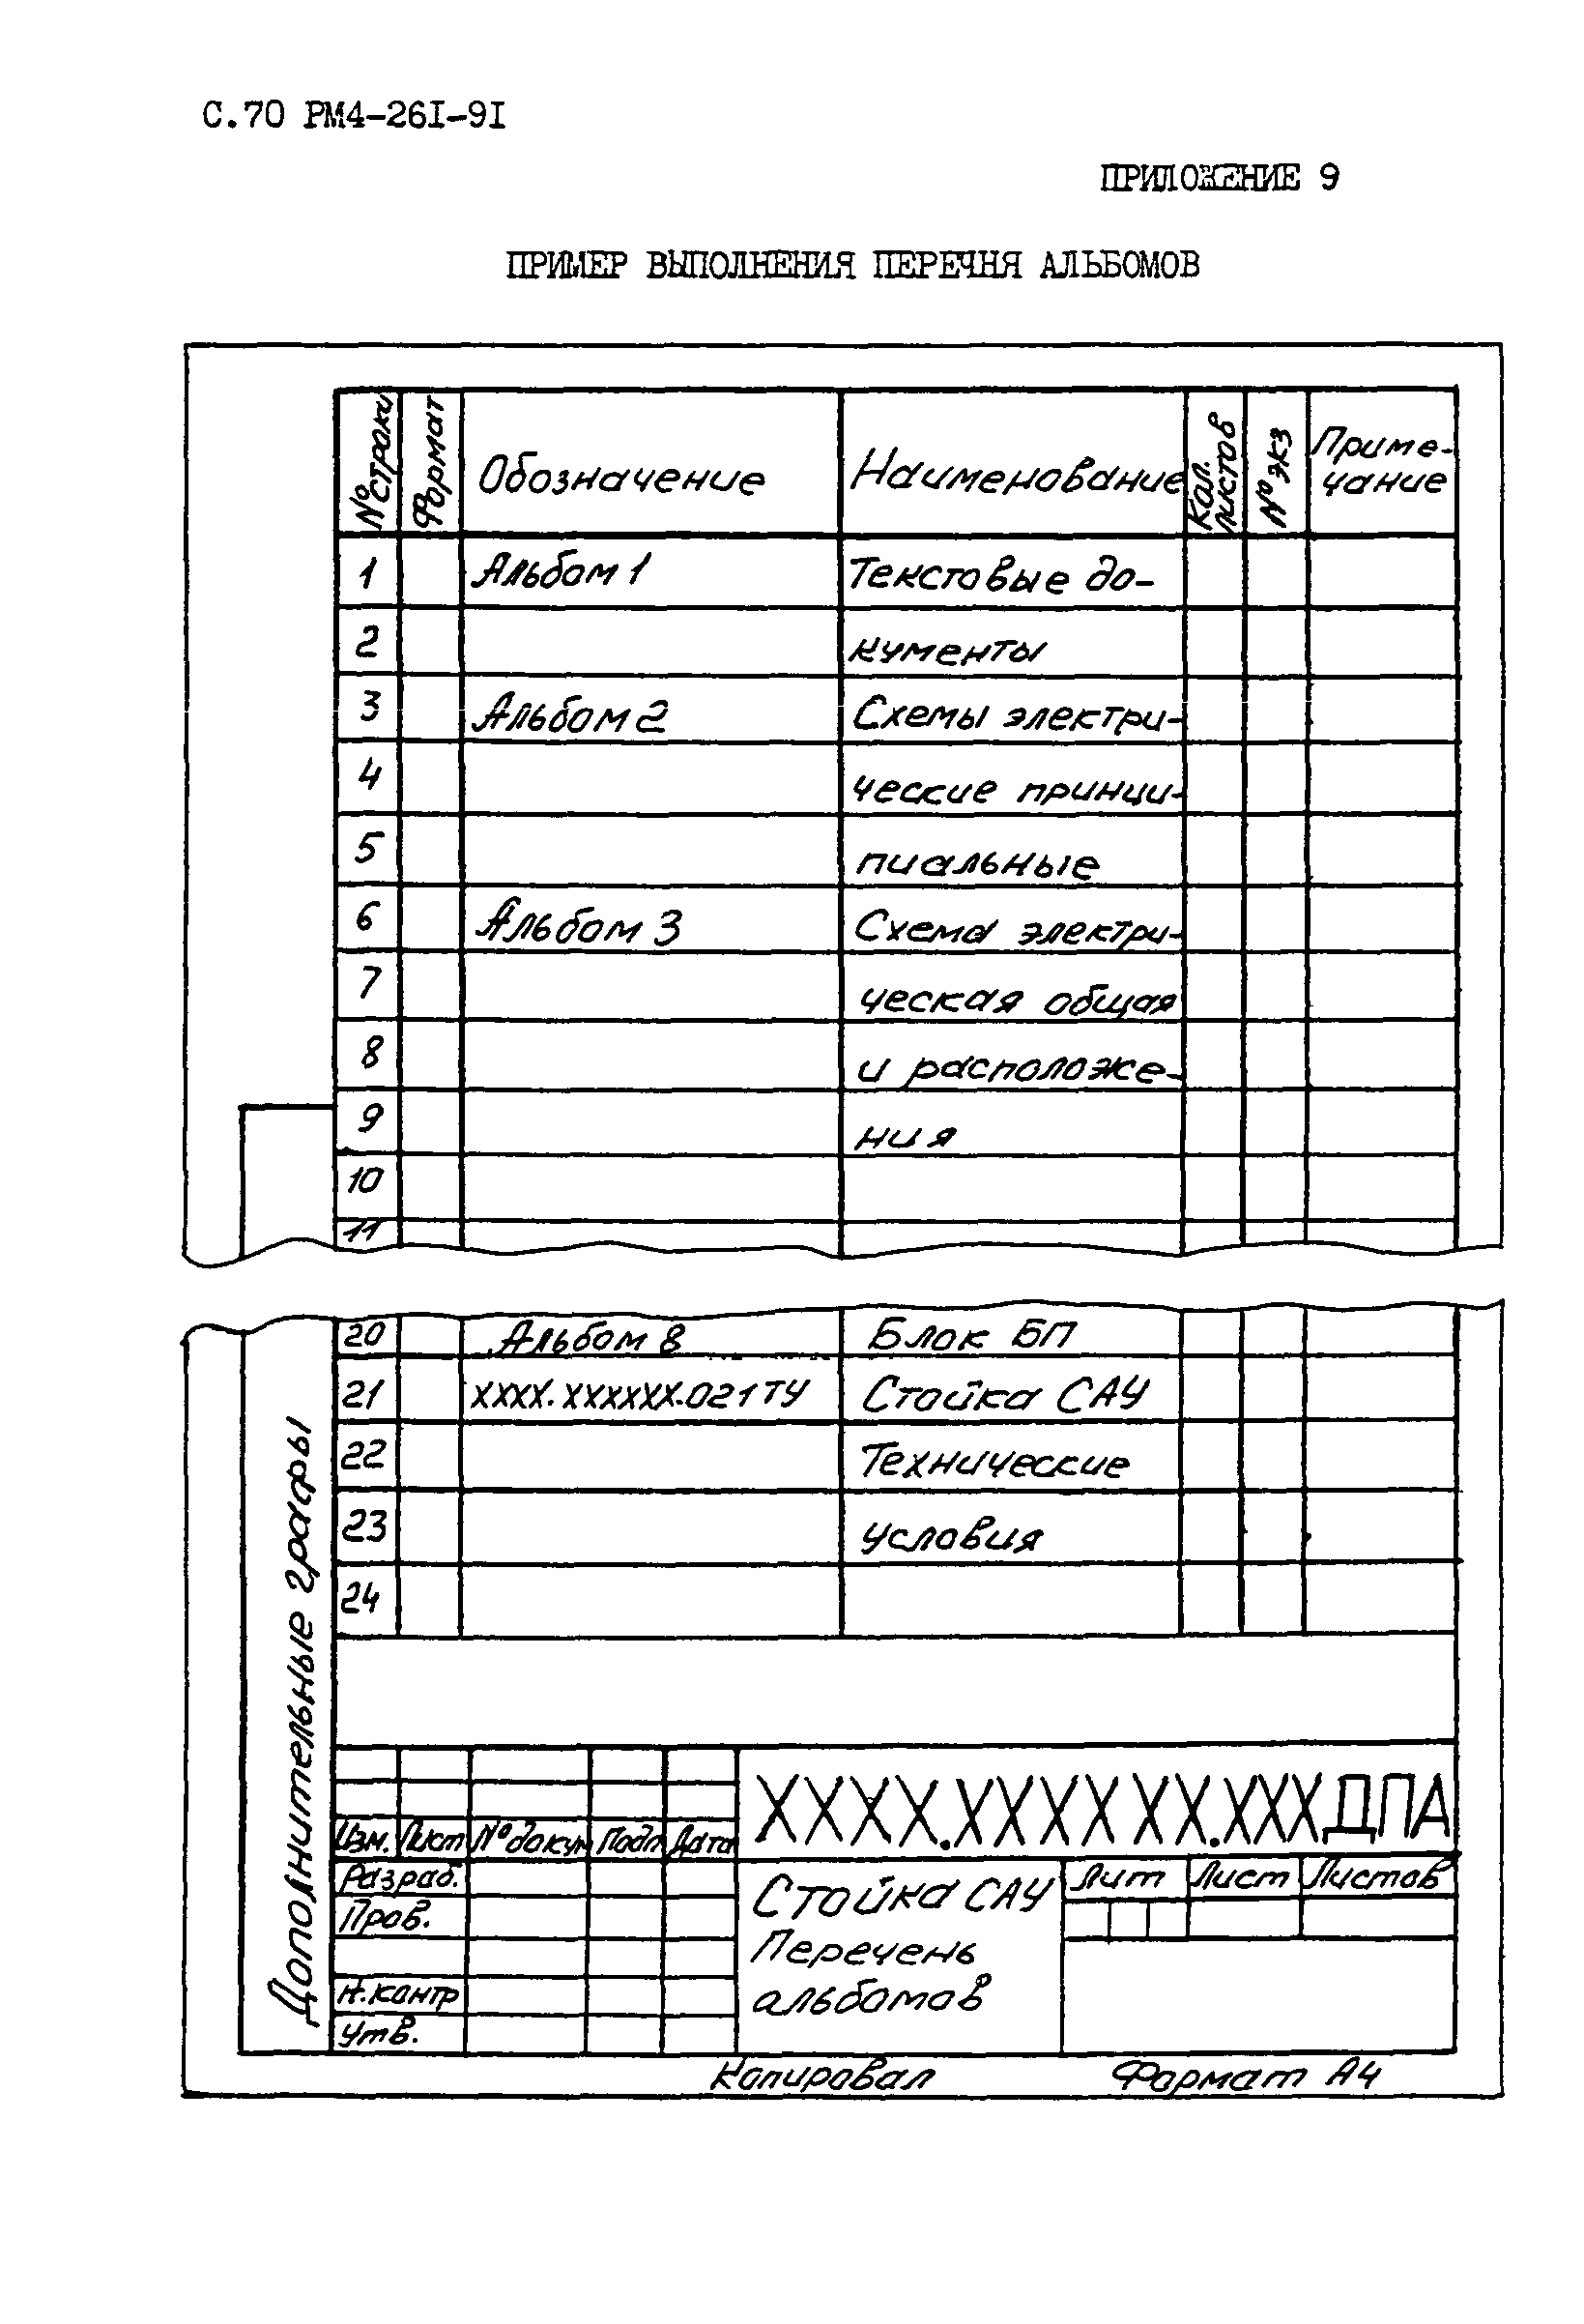 С.70 РМ4-261-91
ПРИЛОЖЕНИЕ 9
ПРИМЕР ВЫПОЛНЕНИЯ ПЕРЕЧНЯ АЛЬБОМОВ
№ строки Формат Обозначение Наименование Кол. листов № экз Приме-
чание
1 Альбом 1 Текстовые до-
2 кументы
3 Альбом 2 Схемы электри-
4 ческие принци-
5 пиальные
6 Альбом 3 Схема электри-
7 ческая общая
8 и расположе-
9 ния
10
11
20 Альбом 8 Блок БП
21 XXXX.XXXXXX.021ТУ Стойка САУ
22 Технические
23 условия
24
Дополнительные графы
XXXX.XXXXXX.XXXДПА
Изм. Лист № докум Подп Дата
Разраб.
Пров.
Н.контр
Утв.
Стойка САУ
Перечень
альбомов
Лит Лист Листов
Копировал Формат А4